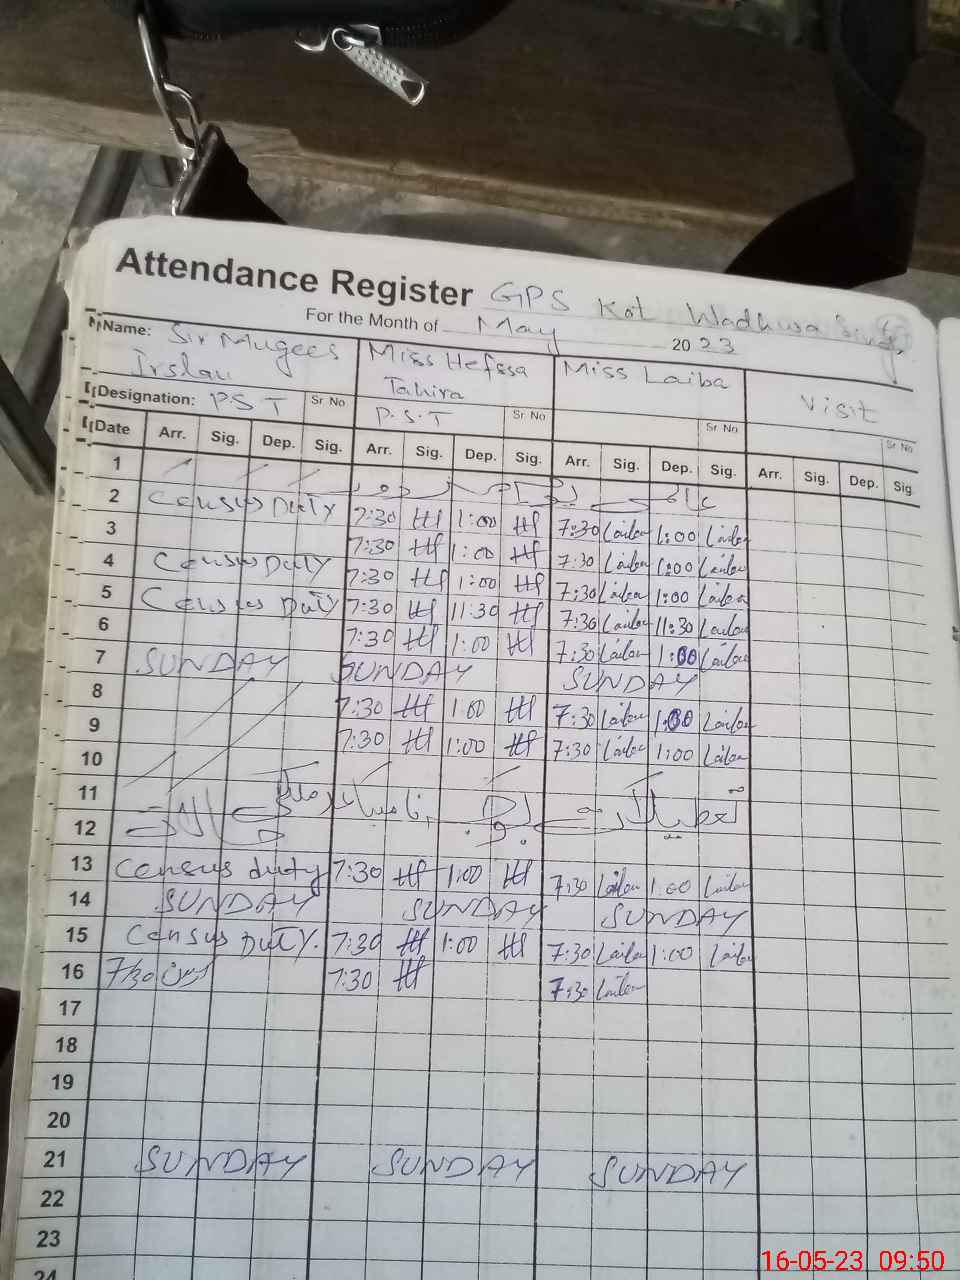 Attendance Register GPS Kot Wadhwa Singh
For the Month of May 2023
Name: Sir Mugees Irslan Miss Hefssa Tahira Miss Laiba Visit
Designation: P.S.T Sr No P.S.T Sr No Sr No Sr No
Date Arr. Sig. Dep. Sig. Arr. Sig. Dep. Sig. Arr. Sig. Dep. Sig. Arr. Sig. Dep. Sig.
1
2 Census Duty 7:30 Hf 1:00 Hf 7:30 Laiba 1:00 Laiba
3 7:30 Hf 1:00 Hf 7:30 Laiba 1:00 Laiba
4 Census Duty 7:30 Hf 1:00 Hf 7:30 Laiba 1:00 Laiba
5 Census Duty 7:30 Hf 11:30 Hf 7:30 Laiba 11:30 Laiba
6 7:30 Hf 1:00 Hf 7:30 Laiba 1:00 Laiba
7 SUNDAY SUNDAY SUNDAY
8 7:30 Hf 1:00 Hf 7:30 Laiba 1:00 Laiba
9 7:30 Hf 1:00 Hf 7:30 Laiba 1:00 Laiba
10
11 تعطیلات
12
13 Census duty 7:30 Hf 1:00 Hf 7:30 Laiba 1:00 Laiba
14 SUNDAY SUNDAY SUNDAY
15 Census Duty. 7:30 Hf 1:00 Hf 7:30 Laiba 1:00 Laiba
16 7/30 7:30 Hf 7:30 Laiba
17
18
19
20
21 SUNDAY SUNDAY SUNDAY
22
23
24
16-05-23 09:50